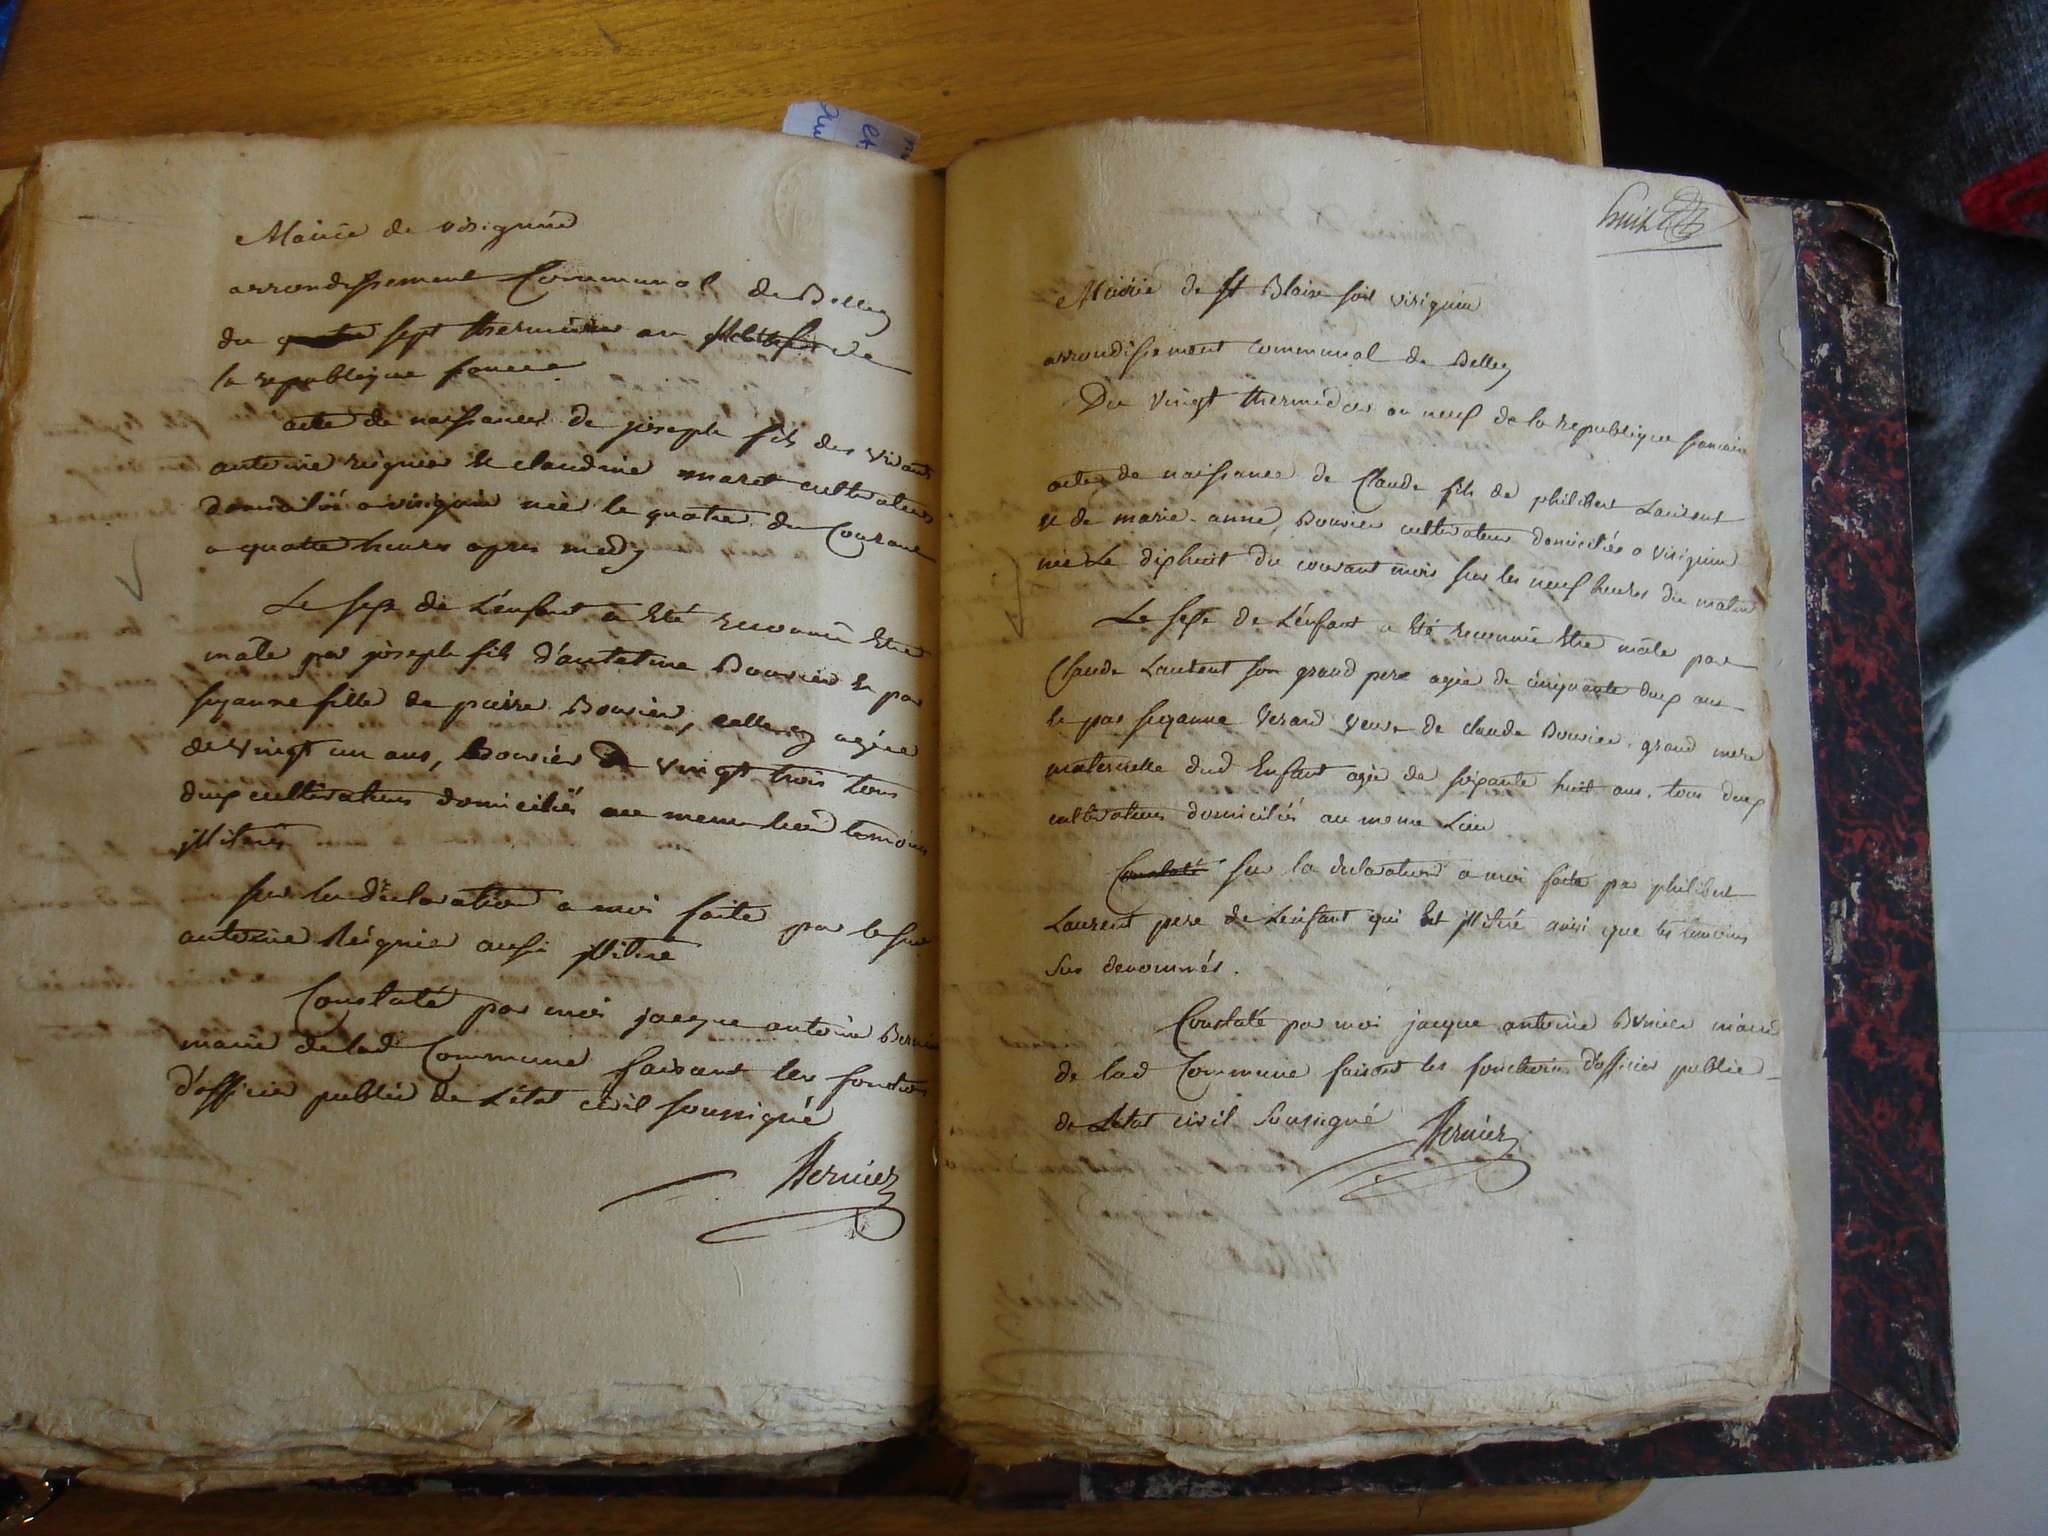 Mairie de virignin
arrondissement Communal de Belley
du sept thermidor an de
la republique france
acte de naissance de joseph fils des vivants
antoine reignier et claudine maret cultivateurs
domicilié a virignin née le quatre du Courant
a quatre heures apres medy
Le sexe de L'enfant a Eté reconnu Etre
mâle par joseph fils d'antoine Bouvier et par
suzanne fille de pierre Bouvier, agée
de vingt un ans, Bouvier de vingt trois tous
deux cultivateurs domiciliés au meme lieu temoins
illiterés
sur la declaration a moi faite par le sus
antoine Reignier aussi illitiré
Constaté par moi jacque antoine Bernier
maire delad Commune faisant les fonctions
d'officier public de L'état civil soussigné
Bernier
huit
Mairie de St Blaise soit virignin
arrondissement communal de Belley
Du vingt thermidor an neuf de la republique francaise
acte de naissance de Claude fils de philibert Laurent
et de marie-anne, Bouvier cultivateurs domiciliés a virignin
née Le dixhuit du courant mois sur les neuf heures du matin
Le sexe de L'énfant a Eté reconnu Etre mâle par
Claude Laurent son grand pere agée de cinquante deux ans
et par suzanne veuve de claude Bouvier, grand mere
maternelle dud Enfant agée de soixante huit ans, tous deux
cultivateurs domiciliés au meme Lieu
Constaté sur la declaration a moi faite par philibert
Laurent pere de L'énfant qui Est illitiré ainsi que les temoins
sus denommés.
Constaté par moi jacque antoine Bernier maire
de lad Commune faisant les fonctions d'officier public
de L'état civil soussigné Bernier